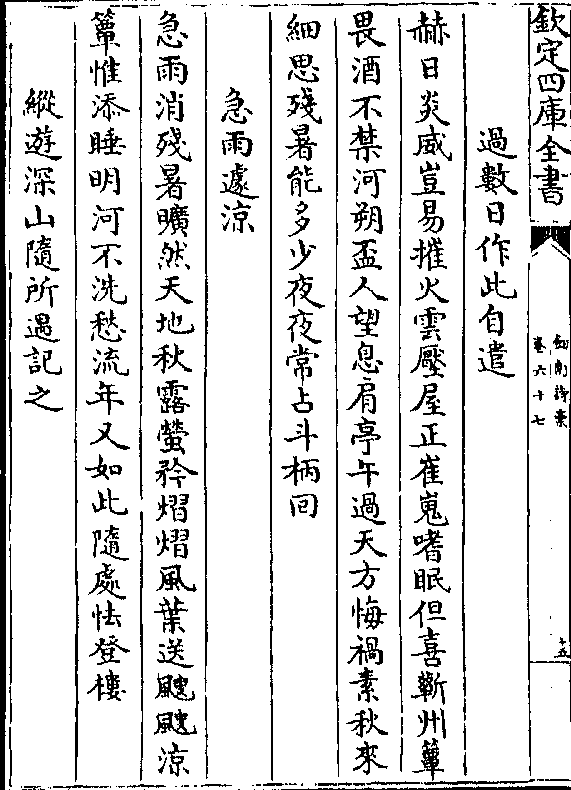 欽定四庫全書
劍南詩藁
卷六十七
十五
過數日作此自遣
赫日炎威豈易摧火雲壓屋正崔嵬嗜眠但喜蘄州簟
畏酒不禁河朔盃人望息肩亭午過天方悔禍素秋來
細思殘暑能多少夜夜常占斗柄回
急雨遽涼
急雨消殘暑曠然天地秋露螢矜熠熠風葉送颼颼涼
簟惟添睡明河不洗愁流年又如此隨處怯登樓
縱遊深山隨所遇記之